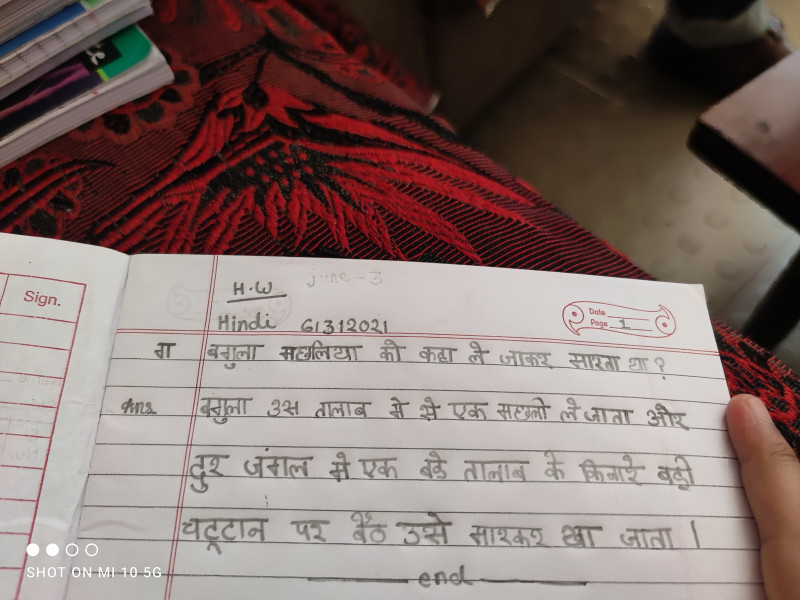 Sign.
H.W
june-3
Hindi 6/3/2021
Date
Page 1
ग बगुला मछलिया को कहा ले जाकर मारता था?
Ans बगुला उस तालाब मे से एक मछली ले जाता और
दुर जंगल मे एक बडे तालाब के किनारे बडी
चट्टान पर बैठ उसे मारकर खा जाता।
end
SHOT ON MI 10 5G